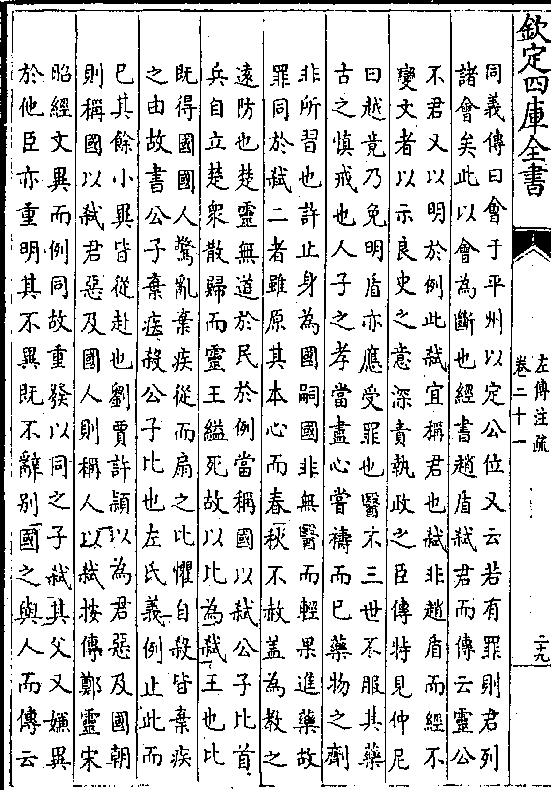 欽定四庫全書
左傳注疏
卷二十一
二十九
同義傳曰會于平州以定公位又云若有罪則君列
諸會矣此以會為斷也經書趙盾弑君而傳云靈公
不君又以明於例此弑宜稱君也弑非趙盾而經不
變文者以示良史之意深責執政之臣傳特見仲尼
曰越竟乃免明盾亦應受罪也醫不三世不服其藥
古之慎戒也人子之孝當盡心嘗禱而已藥物之劑
非所習也許止身為國嗣國非無醫而輕果進藥故
罪同於弑二者雖原其本心而春秋不赦蓋為教之
遠防也楚靈無道於民於例當稱國以弑公子比首
兵自立楚衆散歸而靈王縊死故以比為弑王也比
既得國國人驚亂棄疾從而扇之比懼自殺皆棄疾
之由故書公子棄疾殺公子比也左氏義例止此而
已其餘小異皆從赴也劉賈許頴以為君惡及國朝
則稱國以弑君惡及國人則稱人以弑按傳鄭靈宋
昭經文異而例同故重發以同之子弑其父又嫌異
於他臣亦重明其不異既不辭別國之與人而傳云